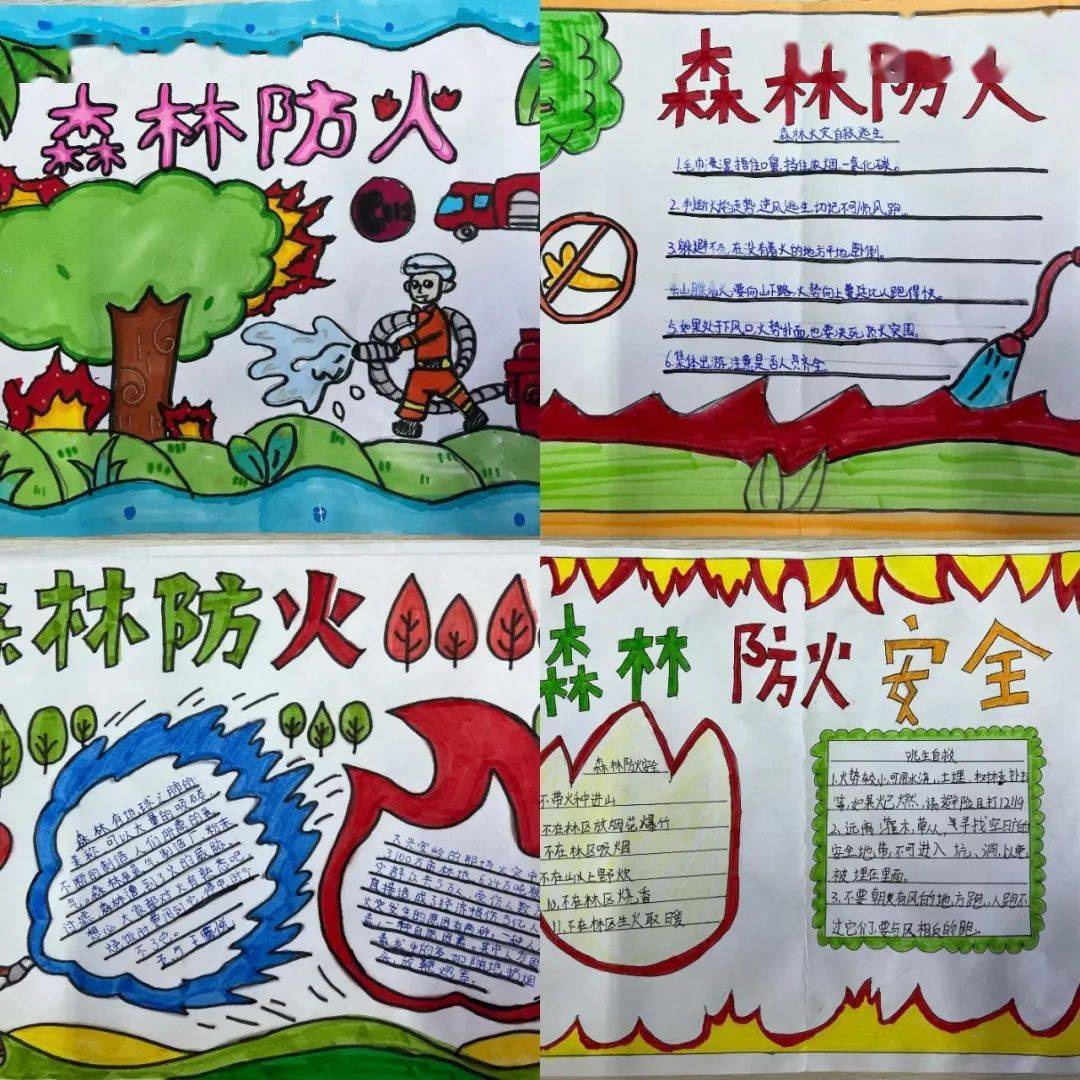 森林防火
森林防火
森林火灾自救逃生
1.毛巾浸湿捂住口鼻,挡住浓烟、一氧化碳。
2.判断火焰走势,逆风逃生,切记不可顺风跑。
3.躲避不及,在没有着火的地方平地卧倒。
4.山腰着火,要向山下路,火势向上蔓延比人跑得快。
5.如果处于下风口,火势扑面,也要决死、突围。
6.集体出游,注意是否人员齐全。
森林防火
森林有地球之肺的
美称,可以大量的吸碳,
不断的制造人们所需的氧
气。森林是氧气制造厂,粉末
过滤。森林遭到了火的威胁,
想必大家都对火有熟悉吧。
烧饭时要间到它,停电时少
不了它。
大兴安岭的那场火灾中
3100万亩林地,6.24万吨粮
灾群众共5万人,受伤人数
直接造成了经济损伤5亿人
火灾发生的原因有两种,一种人
素,一种自然因素。其中人为因
素发生的多,如随地扔烟
头,放鞭炮等。
森林防火安全
森林防火安全
不带火种进山
不在林区放烟花爆竹
不在林区吸烟
不在山上野炊
10.不在林区烧香
11.不在林区生火取暖
逃生自救
1.火势较小,可用水浇、土埋、树枝扑打
等,如果火已燃,请避险且打12119
2.远离灌木、草丛,寻找空旷的
安全地带,不可进入坑、洞,以免
被埋在里面。
3.不要朝有风的地方跑,人跑不
过它们,要与风相反的跑。